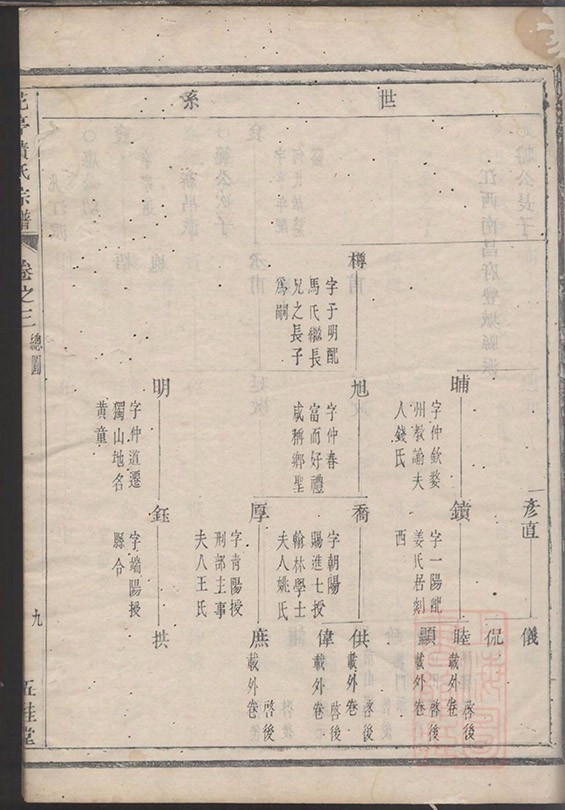 世系
彥直
儀
侃
晡
字仲欽婺
州教諭夫
人錢氏
鐀
字一陽配
姜氏居剡
西
睦
啓後
載外卷
顯
啓後
載外卷
樽
字于明配
馬氏繼長
兄之長子
爲嗣
旭
字仲春
富而好禮
咸稱鄉聖
喬
字朝陽
賜進士授
翰林學士
夫人姚氏
供
啓後
載外卷
偉
啓後
載外卷
厚
字青陽授
刑部主事
夫人王氏
庶
啓後
載外卷
明
字仲道遷
獨山地名
黄童
鈺
字端陽授
縣令
拱
氏宗譜
卷之三
總圖
九
五桂堂